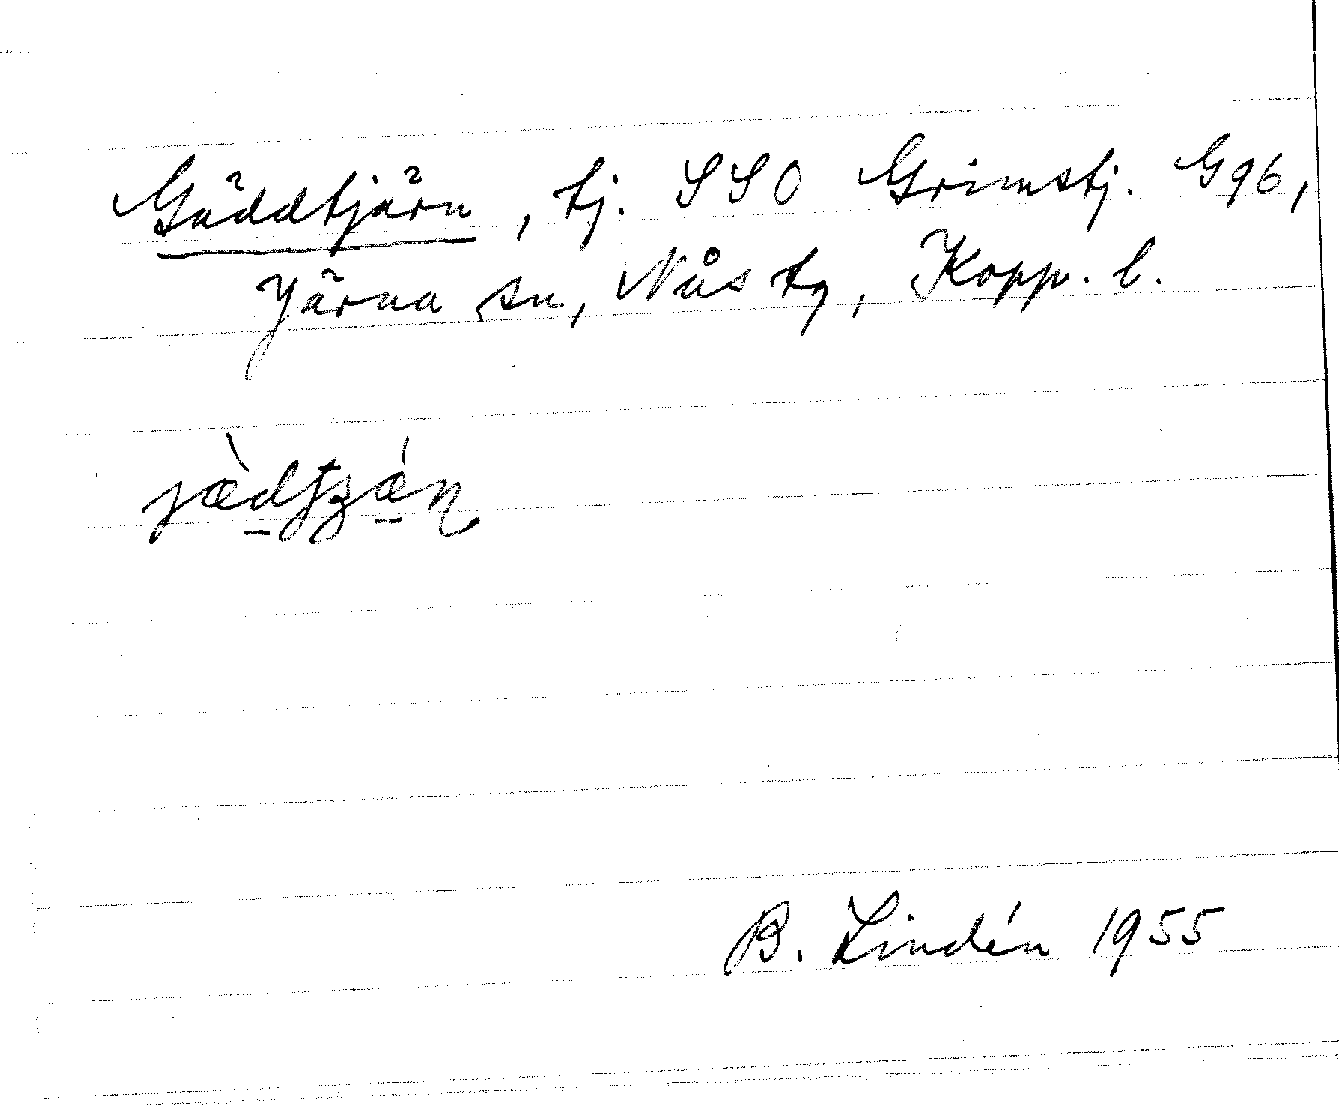 Gäddtjärn, tj. SSO Grimstj. G96,
Järna sn, Nås tg, Kopp. l.
B. Lindén 1955